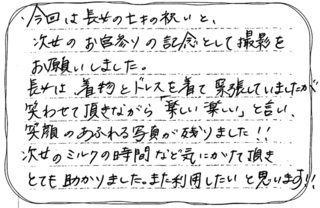 今回は長女の七才の祝いと、
次女のお宮参りの記念として撮影を
お願いしました。
長女は着物とドレスを着て緊張していましたが
笑わせて頂きながら「楽しい楽しい」と言い、
笑顔のあふれる写真が残りました!!
次女のミルクの時間など気にかけて頂き
とても助かりました。また利用したいと思います!!